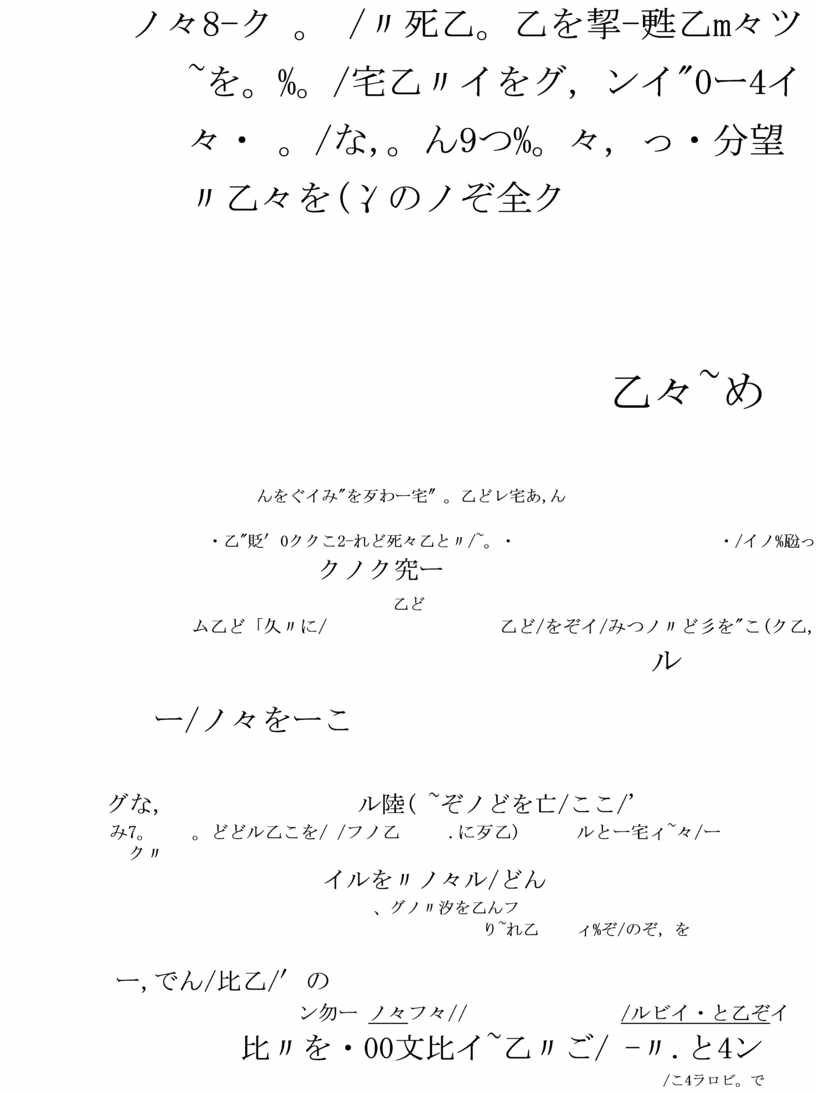 ノ々8-ク 。 /〃死乙。乙を挈-甦乙m々ツ
~を。%。/宅乙〃イをグ, ンイ″0ー4イ
々・ 。/な,。ん9つ%。々, っ・分望
〃乙々を(冫のノぞ全ク
乙々~め
んをぐイみ″を歹わー宅″。乙どレ宅あ,ん
・乙″貶′0ククこ2-れど死々乙と〃/~。・ ・/イノ%っ
クノク究ー
乙ど
ム乙ど「久〃に/ 乙ど/をぞイ/みつノ〃ど彡を″こ(ク乙,
ル
ー/ノ々をーこ
グな, ル陸( ~ぞノどを亡/ここ/’
み7。 。どどル乙こを/ /フノ乙 .に歹乙) ルとー宅ィ~々/ー
ク〃
イルを〃ノ々ル/どん
、グノ〃汐を乙んフ
り~れ乙 ィ%ぞ/のぞ, を
ー,でん/比乙/′の
ン勿ー ノ々フ々// /ルビイ・と乙ぞイ
比〃を・00文比イ~乙〃ご/ -〃.と4ン
/こ4ラロビ。で